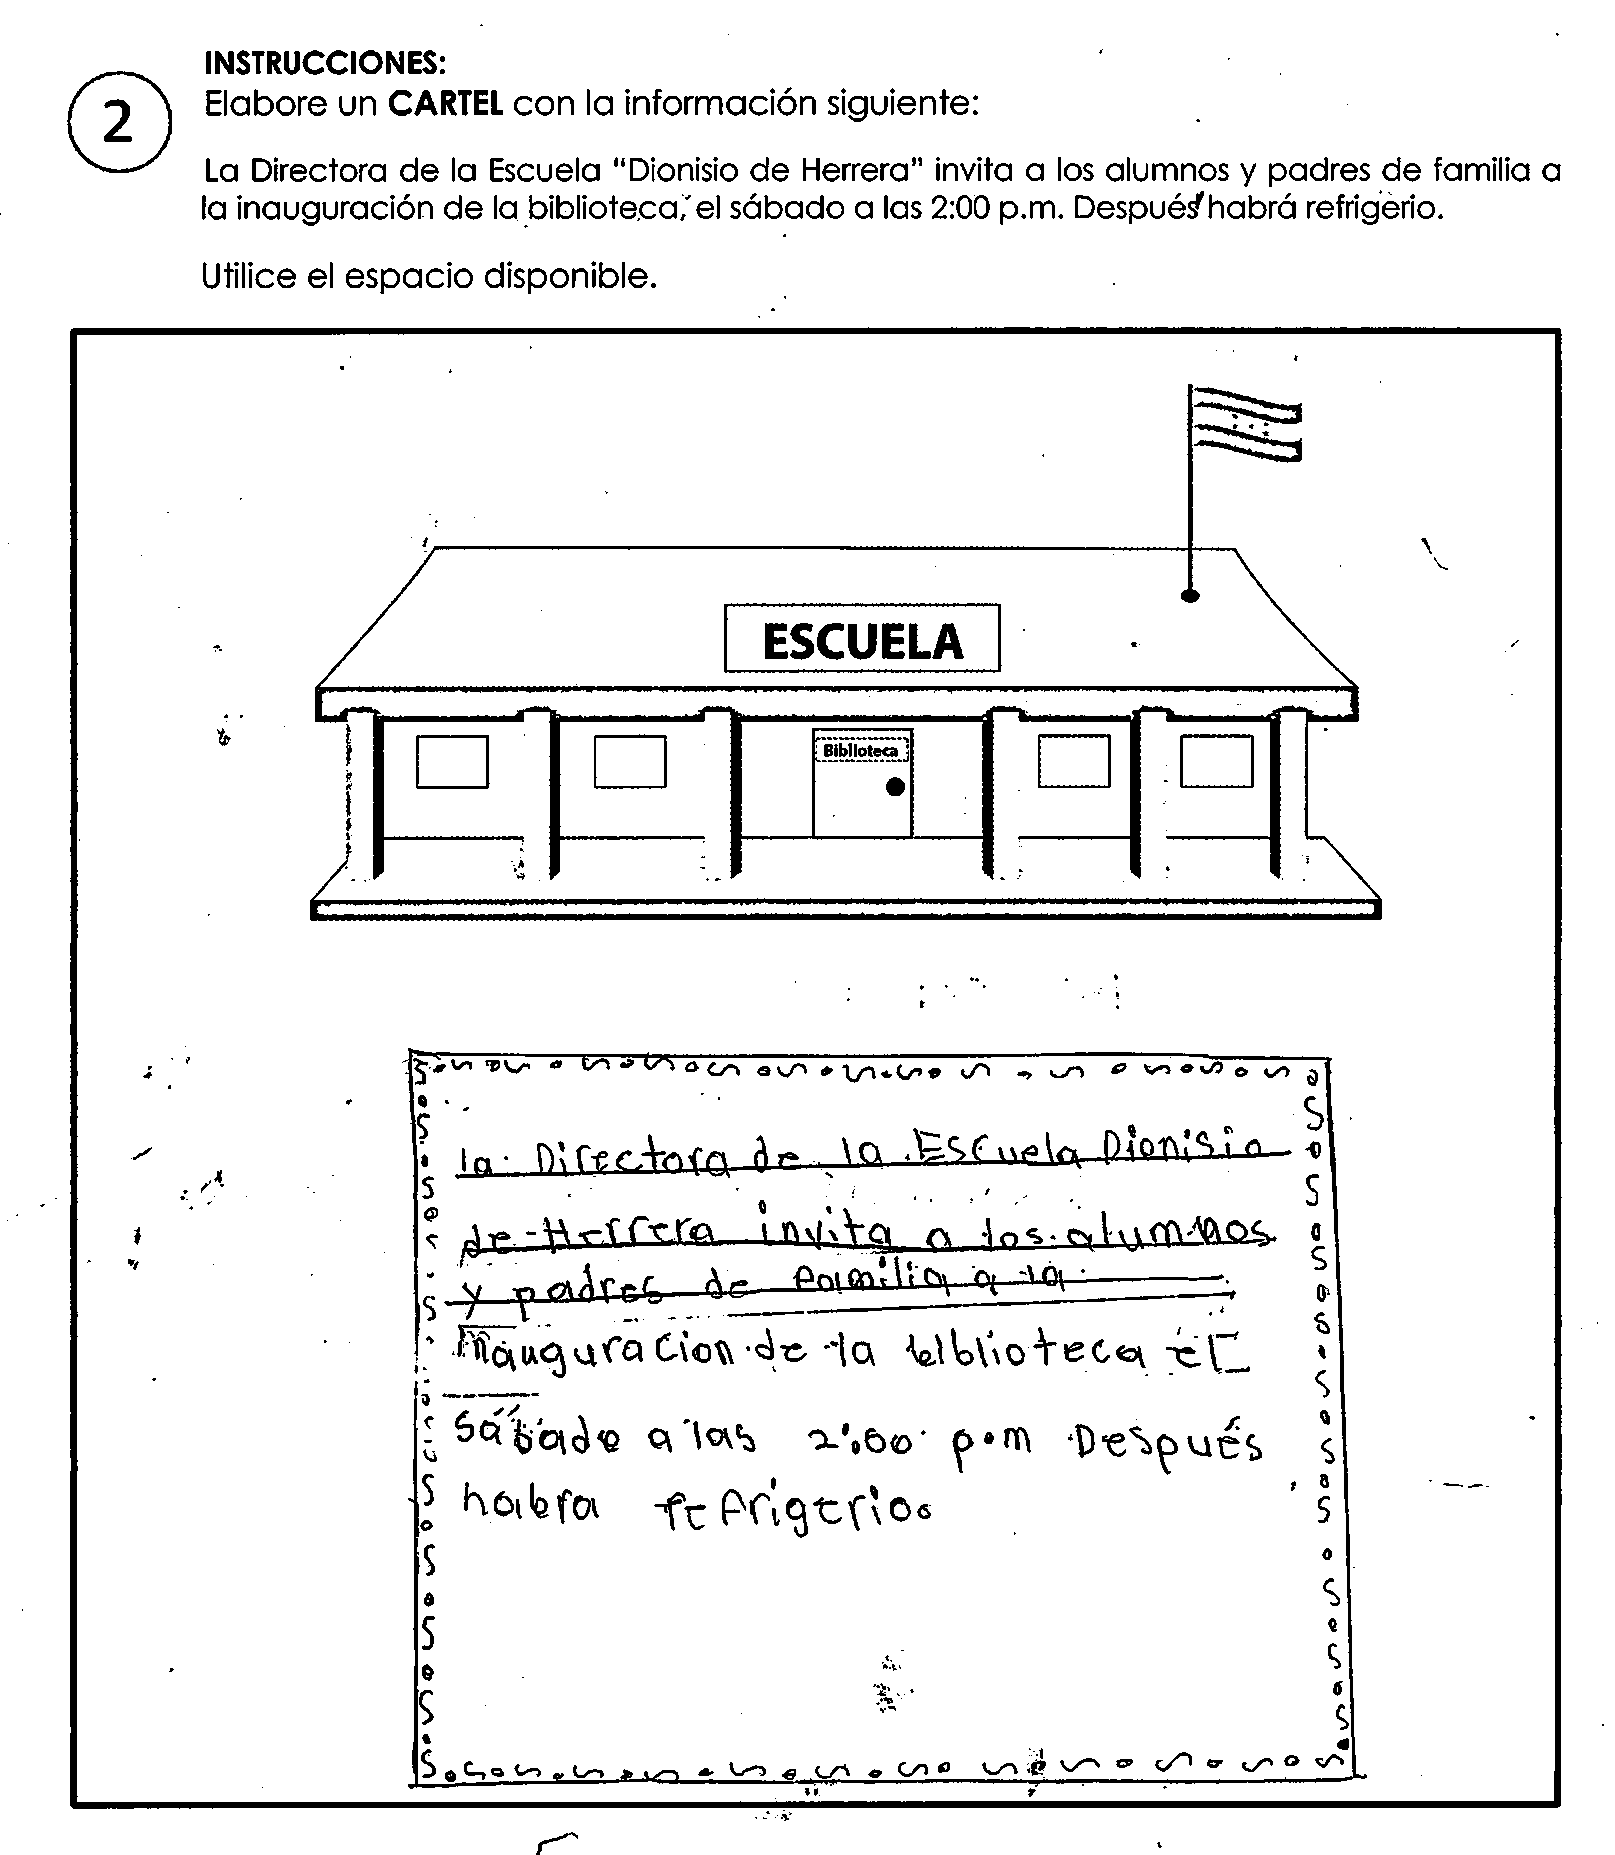 INSTRUCCIONES:
2
Elabore un CARTEL con la información siguiente:
La Directora de la Escuela "Dionisio de Herrera" invita a los alumnos y padres de familia a
la inauguración de la biblioteca, el sábado a las 2:00 p.m. Después habrá refrigerio.
Utilice el espacio disponible.
ESCUELA
Biblioteca
la Directora de la Escuela Dionisio
de Herrera invita a los alumnos
y padres de familia a la
inauguracion de la biblioteca el
sábado a las 2:00 p.m Después
habra refrigerio.